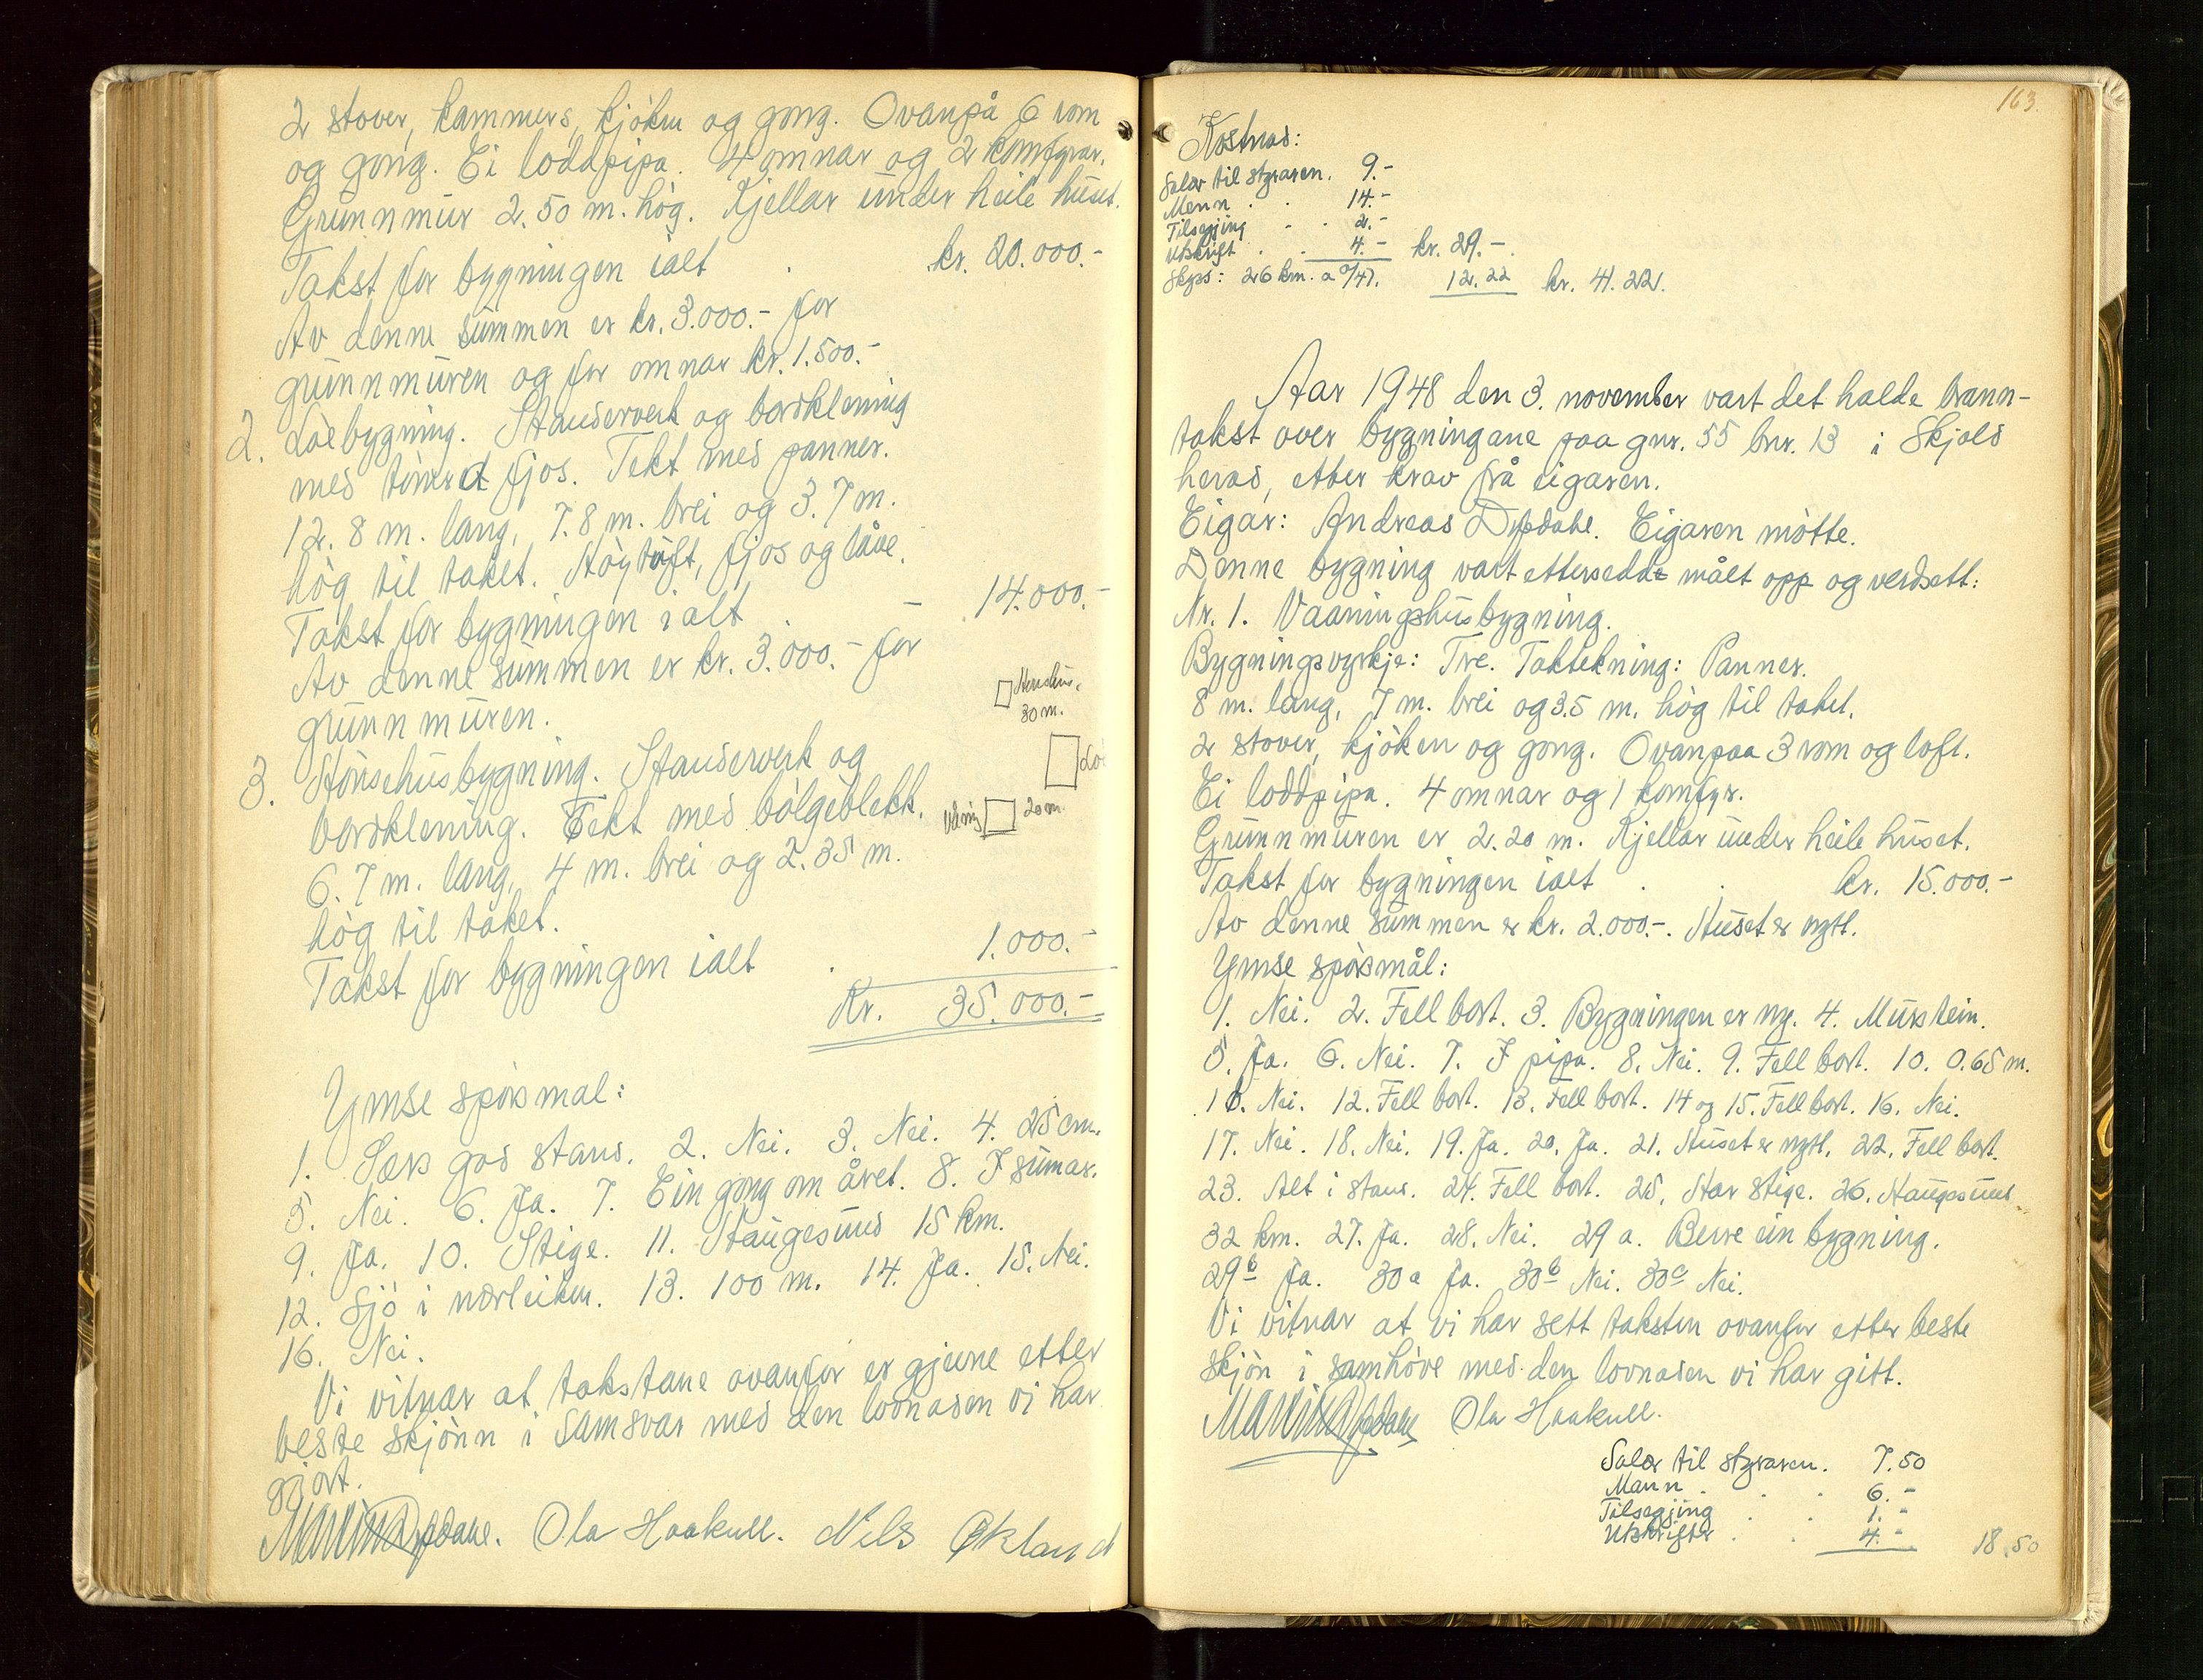 2 stover, kammers, kjøken og gong. Ovanpå 6 rom
og gong. Ei loddpipa. 4 omnar og 2 komfyrar.
Grunnmur 2.50 m. høg. Kjellar under heile huset.
Takst for bygningen ialt . kr. 20.000.-
Av denne summen er kr. 3.000.- for
grunnmuren og for omnar kr. 1.500.-
2. Løebygning. Standerverk og bordklening
med timra fjos. Tekt med panner.
12.8 m. lang, 7.8 m. brei og 3.7 m.
høg til taket. Høytuft, fjos og låve.
Takst for bygningen ialt - 14.000.-
Av denne summen er kr. 3.000.- for
grunnmuren.
3. Hønsehusbygning. Standerverk og
bordklening. Tekt med bølgeblekk.
6.7 m. lang, 4 m. brei og 2.35 m.
høg til taket.
Takst for bygningen ialt . 1.000.-
Kr. 35.000.-
30 m.
20 m.
Ymse spörsmal:
1. Særs god stand. 2. Nei. 3. Nei. 4. 25 cm.
5. Nei. 6. Ja. 7. Ein gong om året. 8. I sumar.
9. Ja. 10. Stige. 11. Haugesund 15 km.
12. Sjö i nærleiken. 13. 100 m. 14. Ja. 15. Nei.
16. Nei.
Vi vitnar at takstane ovanfor er gjevne etter
beste skjönn i samsvar med den lovnaden vi har
gjort.
Ola Haakull. Nils Økland
163.
Kostnad:
Salær til styraren. 9.-
Menn . . 14.-
Tilsegjing . . 2.-
Utskrift . . 4.- kr. 29.-
Skyss: 26 km. a 0/47. 12.22 kr. 41.22.
Aar 1948 den 3. november vart det halde brann-
takst over bygningane paa gnr. 55 bnr. 13 i Skjold
herad, etter krav frå eigaren.
Eigar: Andreas Dypdahl. Eigaren møtte.
Denne bygning vart ettersedde målt opp og verdsett:
Nr. 1. Vaaningshusbygning.
Bygningsvyrkje: Tre. Taktekning: Panner.
8 m. lang, 7 m. brei og 3.5 m. høg til taket.
2 stover, kjøken og gong. Ovanpaa 3 rom og loft.
Ei loddpipa. 4 omnar og 1 komfyr.
Grunnmuren er 2.20 m. Kjellar under heile huset.
Takst for bygningen ialt . . kr. 15.000.-
Av denne summen er kr. 2.000.-. Huset er nytt.
Ymse spörsmål:
1. Nei. 2. Fell bort. 3. Bygningen er ny. 4. Murstein.
5. Ja. 6. Nei. 7. I pipa. 8. Nei. 9. Fell bort. 10. 0.65 m.
11. Nei. 12. Fell bort. 13. Fell bort. 14 og 15. Fell bort. 16. Nei.
17. Nei. 18. Nei. 19. Ja. 20. Ja. 21. Huset er nytt. 22. Fell bort.
23. Alt i stand. 24. Fell bort. 25. Har stige. 26. Haugesund
32 km. 27. Ja. 28. Nei. 29 a. Berre ein bygning.
29 b Ja. 30 a Ja. 30 b Nei. 30 c Nei.
Vi vitnar at vi har sett taksten ovanfor etter beste
skjön i samhöve med den lovnaden vi har gitt.
Ola Haakull.
Salær til styraren. 7.50
Mann . . 6.-
Tilsegjing . . 1.-
Utskrifter . . 4.- 18.50